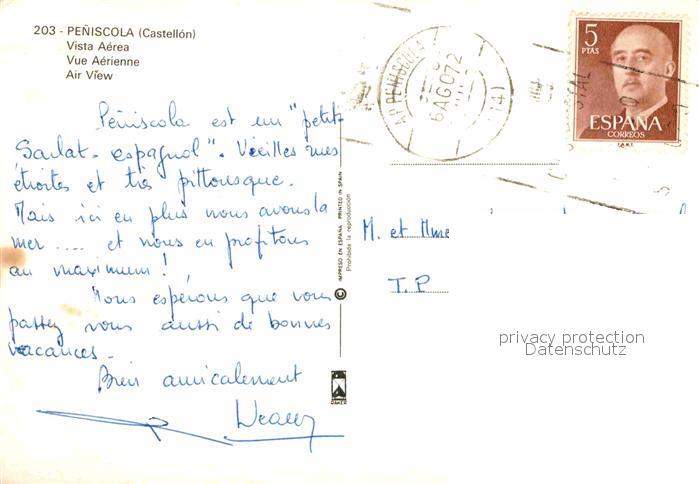 203 - PEÑISCOLA (Castellón)
Vista Aérea
Vue Aérienne
Air View
Peñiscola est un "petit
Sarlat - espagnol". Vieilles rues
étroites et très pittoresque.
Mais ici en plus nous avons la
mer .... et nous en profitons
au maximum !
Nous espérons que vous
passez vous aussi de bonnes
vacances.
Bien amicalement
IMPRESO EN ESPAÑA PRINTED IN SPAIN
Prohibida la reproducción
DAKER
PEÑISCOLA
6 AGO 72
5
PTAS
ESPAÑA
CORREOS
F.N.M.T.
M. et Mme
T.P
privacy protection
Datenschutz